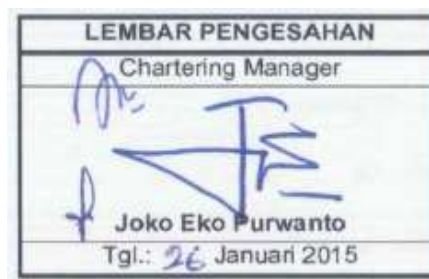 LEMBAR PENGESAHAN
Chartering Manager
Joko Eko Purwanto
Tgl.: 26 Januari 2015